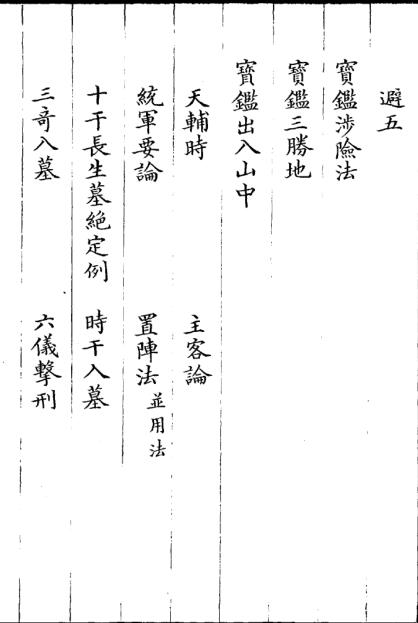 避五
寶鑑涉險法
寶鑑三勝地
寶鑑出入山中
天輔時 主客論
統軍要論 置陣法 並用法
十干長生墓絕定例 時干入墓
三奇入墓 六儀擊刑